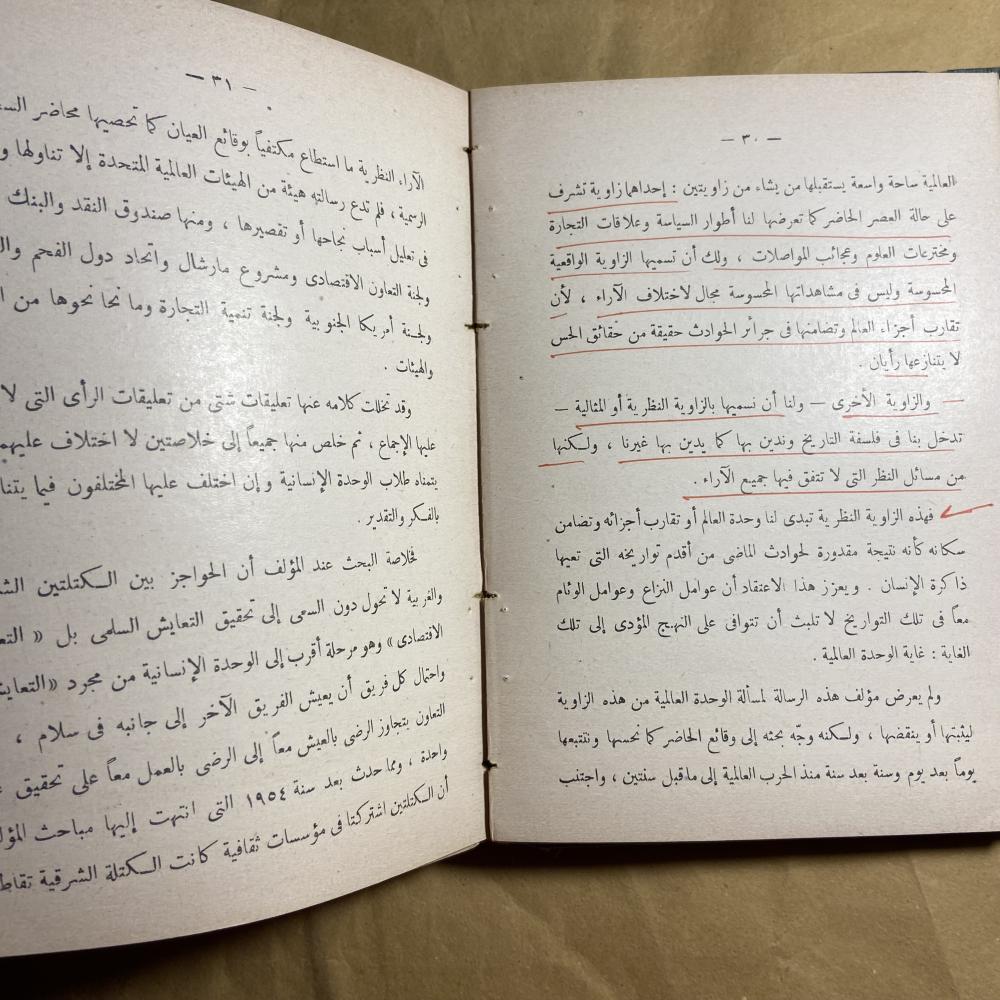 — ٣٠ —
العالمية ساحة واسعة يستقبلها من يشاء من زاويتين : إحداهما زاوية تشرف
على حالة العصر الحاضر كما تعرضها لنا أطوار السياسة وعلاقات التجارة
ومخترعات العلوم وعجائب المواصلات ، ولك أن تسميها الزاوية الواقعية
المحسوسة وليس فى مشاهداتها المحسوسة مجال لاختلاف الآراء ، لأن
تقارب أجزاء العالم وتضامنها فى جرائر الحوادث حقيقة من حقائق الحس
لا يتنازعها رأيان .
والزاوية الأخرى — ولنا أن نسميها بالزاوية النظرية أو المثالية —
تدخل بنا فى فلسفة التاريخ وندين بها كما يدين بها غيرنا ، ولكنها
من مسائل النظر التى لا تتفق فيها جميع الآراء .
فهذه الزاوية النظرية تبدى لنا وحدة العالم أو تقارب أجزائه وتضامن
سكانه كأنه نتيجة مقدورة لحوادث الماضى من أقدم تواريخه التى تعيها
ذاكرة الإنسان . ويعزز هذا الاعتقاد أن عوامل النزاع وعوامل الوئام
معاً فى تلك التواريخ لا تلبث أن تتوافى على النهج المؤدى إلى تلك
الغاية : غاية الوحدة العالمية .
ولم يعرض مؤلف هذه الرسالة لمسألة الوحدة العالمية من هذه الزاوية
ليثبتها أو ينقضها ، ولكنه وجّه بحثه إلى وقائع الحاضر كما نحسها ونتتبعها
يوماً بعد يوم وسنة بعد سنة منذ الحرب العالمية إلى ما قبل سنتين ، واجتنب
— ٣١ —
الآراء النظرية ما استطاع مكتفياً بوقائع العيان كما تحصيها محاضر
الرسمية ، فلم تدع رسالته هيئة من الهيئات العالمية المتحدة إلا تناولها
فى تعليل أسباب نجاحها أو تقصيرها ، ومنها صندوق النقد والبنك
ولجنة التعاون الاقتصادى ومشروع مارشال واتحاد دول الفحم
ولجنة أمريكا الجنوبية ولجنة تنمية التجارة وما نحا نحوها من
والهيئات .
وقد تخللت كلامه عنها تعليقات شتى من تعليقات الرأى التى لا
عليها الإجماع ، ثم خلص منها جميعاً إلى خلاصتين لا اختلاف عليهما
يتمناه طلاب الوحدة الإنسانية وإن اختلف عليها المختلفون فيما
بالفكر والتقدير .
فخلاصة البحث عند المؤلف أن الحواجز بين الكتلتين
والغربية لا تحول دون السعى إلى تحقيق التعايش السلمى بل «
الاقتصادى » وهو مرحلة أقرب إلى الوحدة الإنسانية من مجرد «
واحتمال كل فريق أن يعيش الفريق الآخر إلى جانبه فى سلام ،
التعاون يتجاوز الرضى بالعيش معاً إلى الرضى بالعمل معاً على تحقيق
واحدة ، ومما حدث بعد سنة ١٩٥٤ التى انتهت إليها مباحث
أن الكتلتين اشتركتا فى مؤسسات ثقافية كانت الكتلة الشرقية